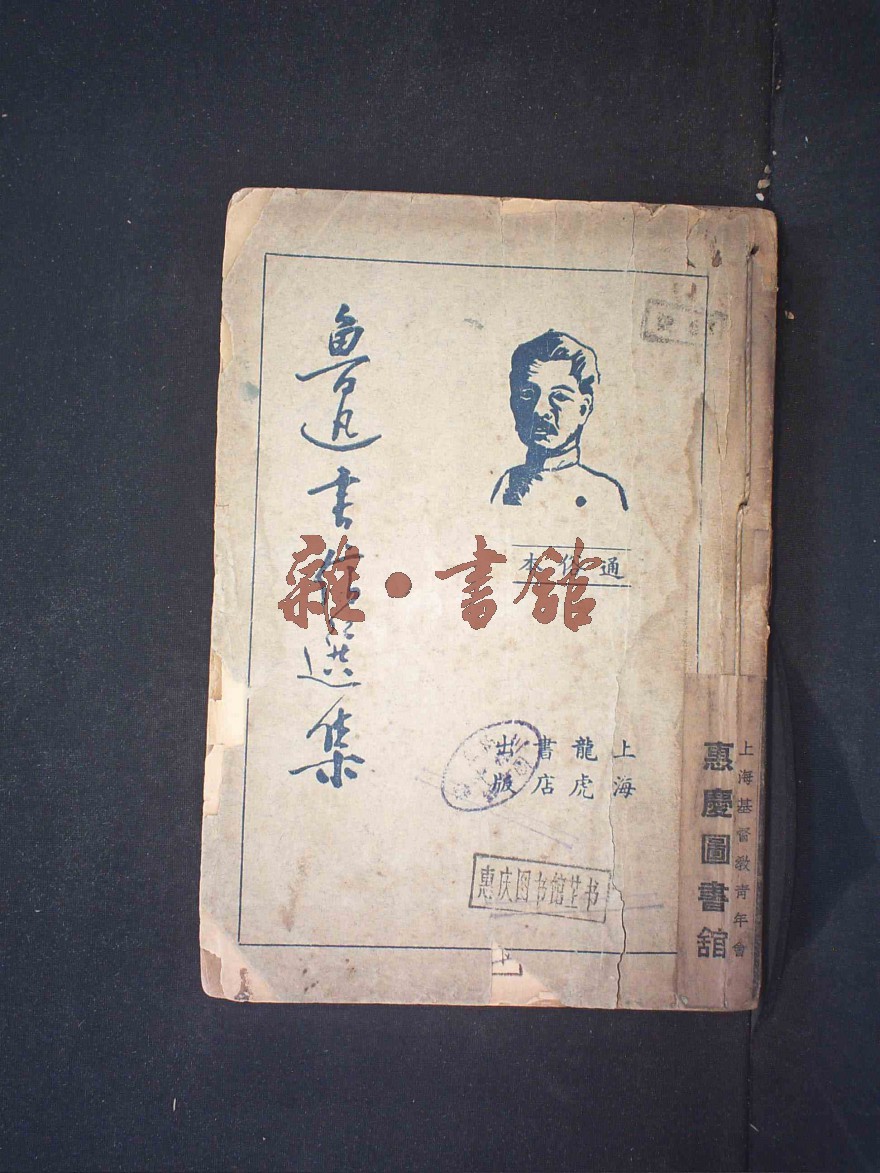 魯迅書信選集
通俗本
上海
龍虎
書店
出版
雜·書館
上海基督教青年會
惠慶圖書館
惠庆图书馆芷书